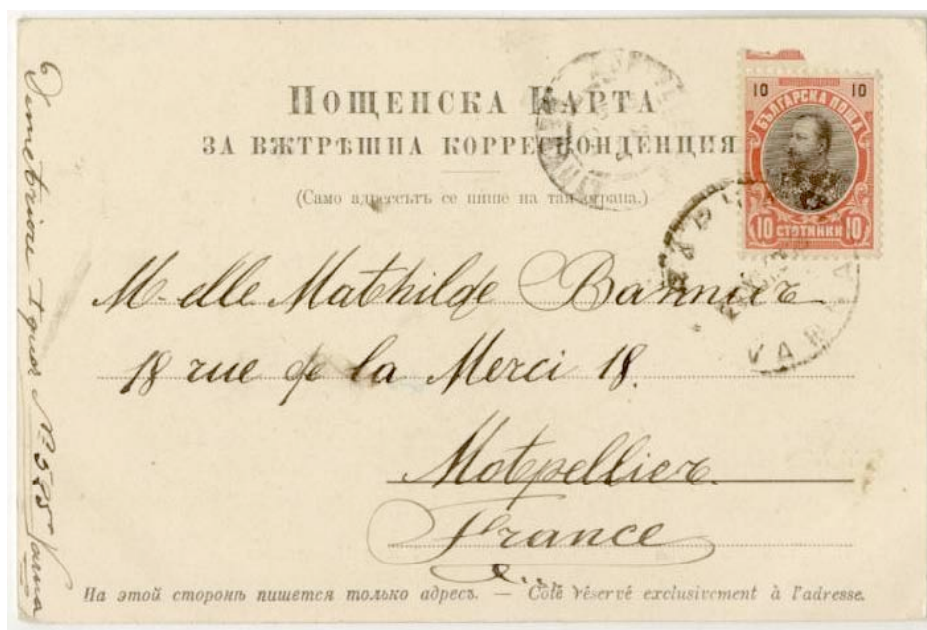 Пощенска Карта
ЗА ВѪТРѢШНА КОРРЕСПОНДЕНЦИЯ
(Само адрессътъ се пише на тая страна.)
10 10
БЪЛГАРСКА ПОЩА
10 СТОТИНКИ 10
ВАРНА
VARNA
M-elle Mathilde Bannier
18 rue de la Merci 18.
Motpellier
France
На этой сторонѣ пишется только адресъ. — Côté réservé exclusivement à l'adresse.
№ 575 Varna